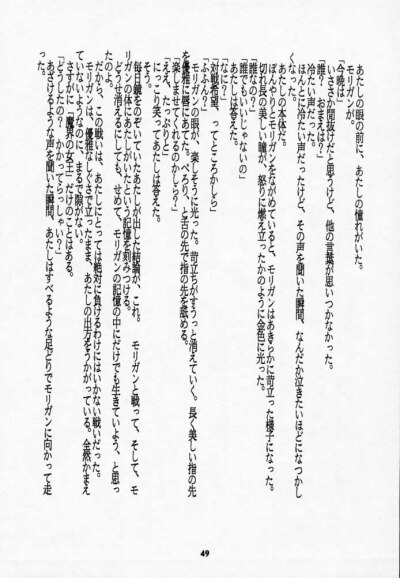 あたしの眼の前に、あたしの憧れがいた。
モリガンが。
「今晩は」
いささか間抜けだと思うけど、他の言葉が思いつかなかった。
「誰？　おまえは？」
冷たい声だった。
ほんとに冷たい声だったけど、その声を聞いた瞬間、なんだか泣きたいほどになつかし
くなった。
あたしの本体だ。
ぼんやりとモリガンをながめていると、モリガンはあきらかに苛立った様子になった。
切れ長の美しい瞳が、怒りに燃え立ったかのように金色に光った。
「誰なの？」
「誰でもいいじゃないの」
あたしは答えた。
「なに？」
「対戦希望、ってところかしら」
「ふふん？」
モリガンの眼が、楽しそうに光った。苛立ちがすうっと消えていく。長く美しい指の先
を優雅に唇にあてた。ぺろり、と舌の先で指の先を舐める。
「楽しませてくれるのかしら？」
「ええ、たっぷりと」
にっこり笑ってあたしは答えた。
そう。
毎日鏡をのぞいていたあたしが出した結論が、これ。　モリガンと戦って、そして、モ
リガンの体にあたしがいたという記憶を刻みつける。
どうせ消えるにしても、せめて、モリガンの記憶の中にだけでも生きていよう、と思っ
たのよ。
だから、この戦いは、あたしにとっては絶対に負けるわけにはいかない戦いだった。
モリガンは、優雅なしぐさで立ったまま、あたしの出方をうかがっている。全然かまえ
ていないようなのに、まるで隙がない。
さすがに「魔界の女王」だけのことはある。
「どうしたの？　かかってらっしゃい？」
あざけるような声を聞いた瞬間、あたしはすべるような足どりでモリガンに向かって走
49